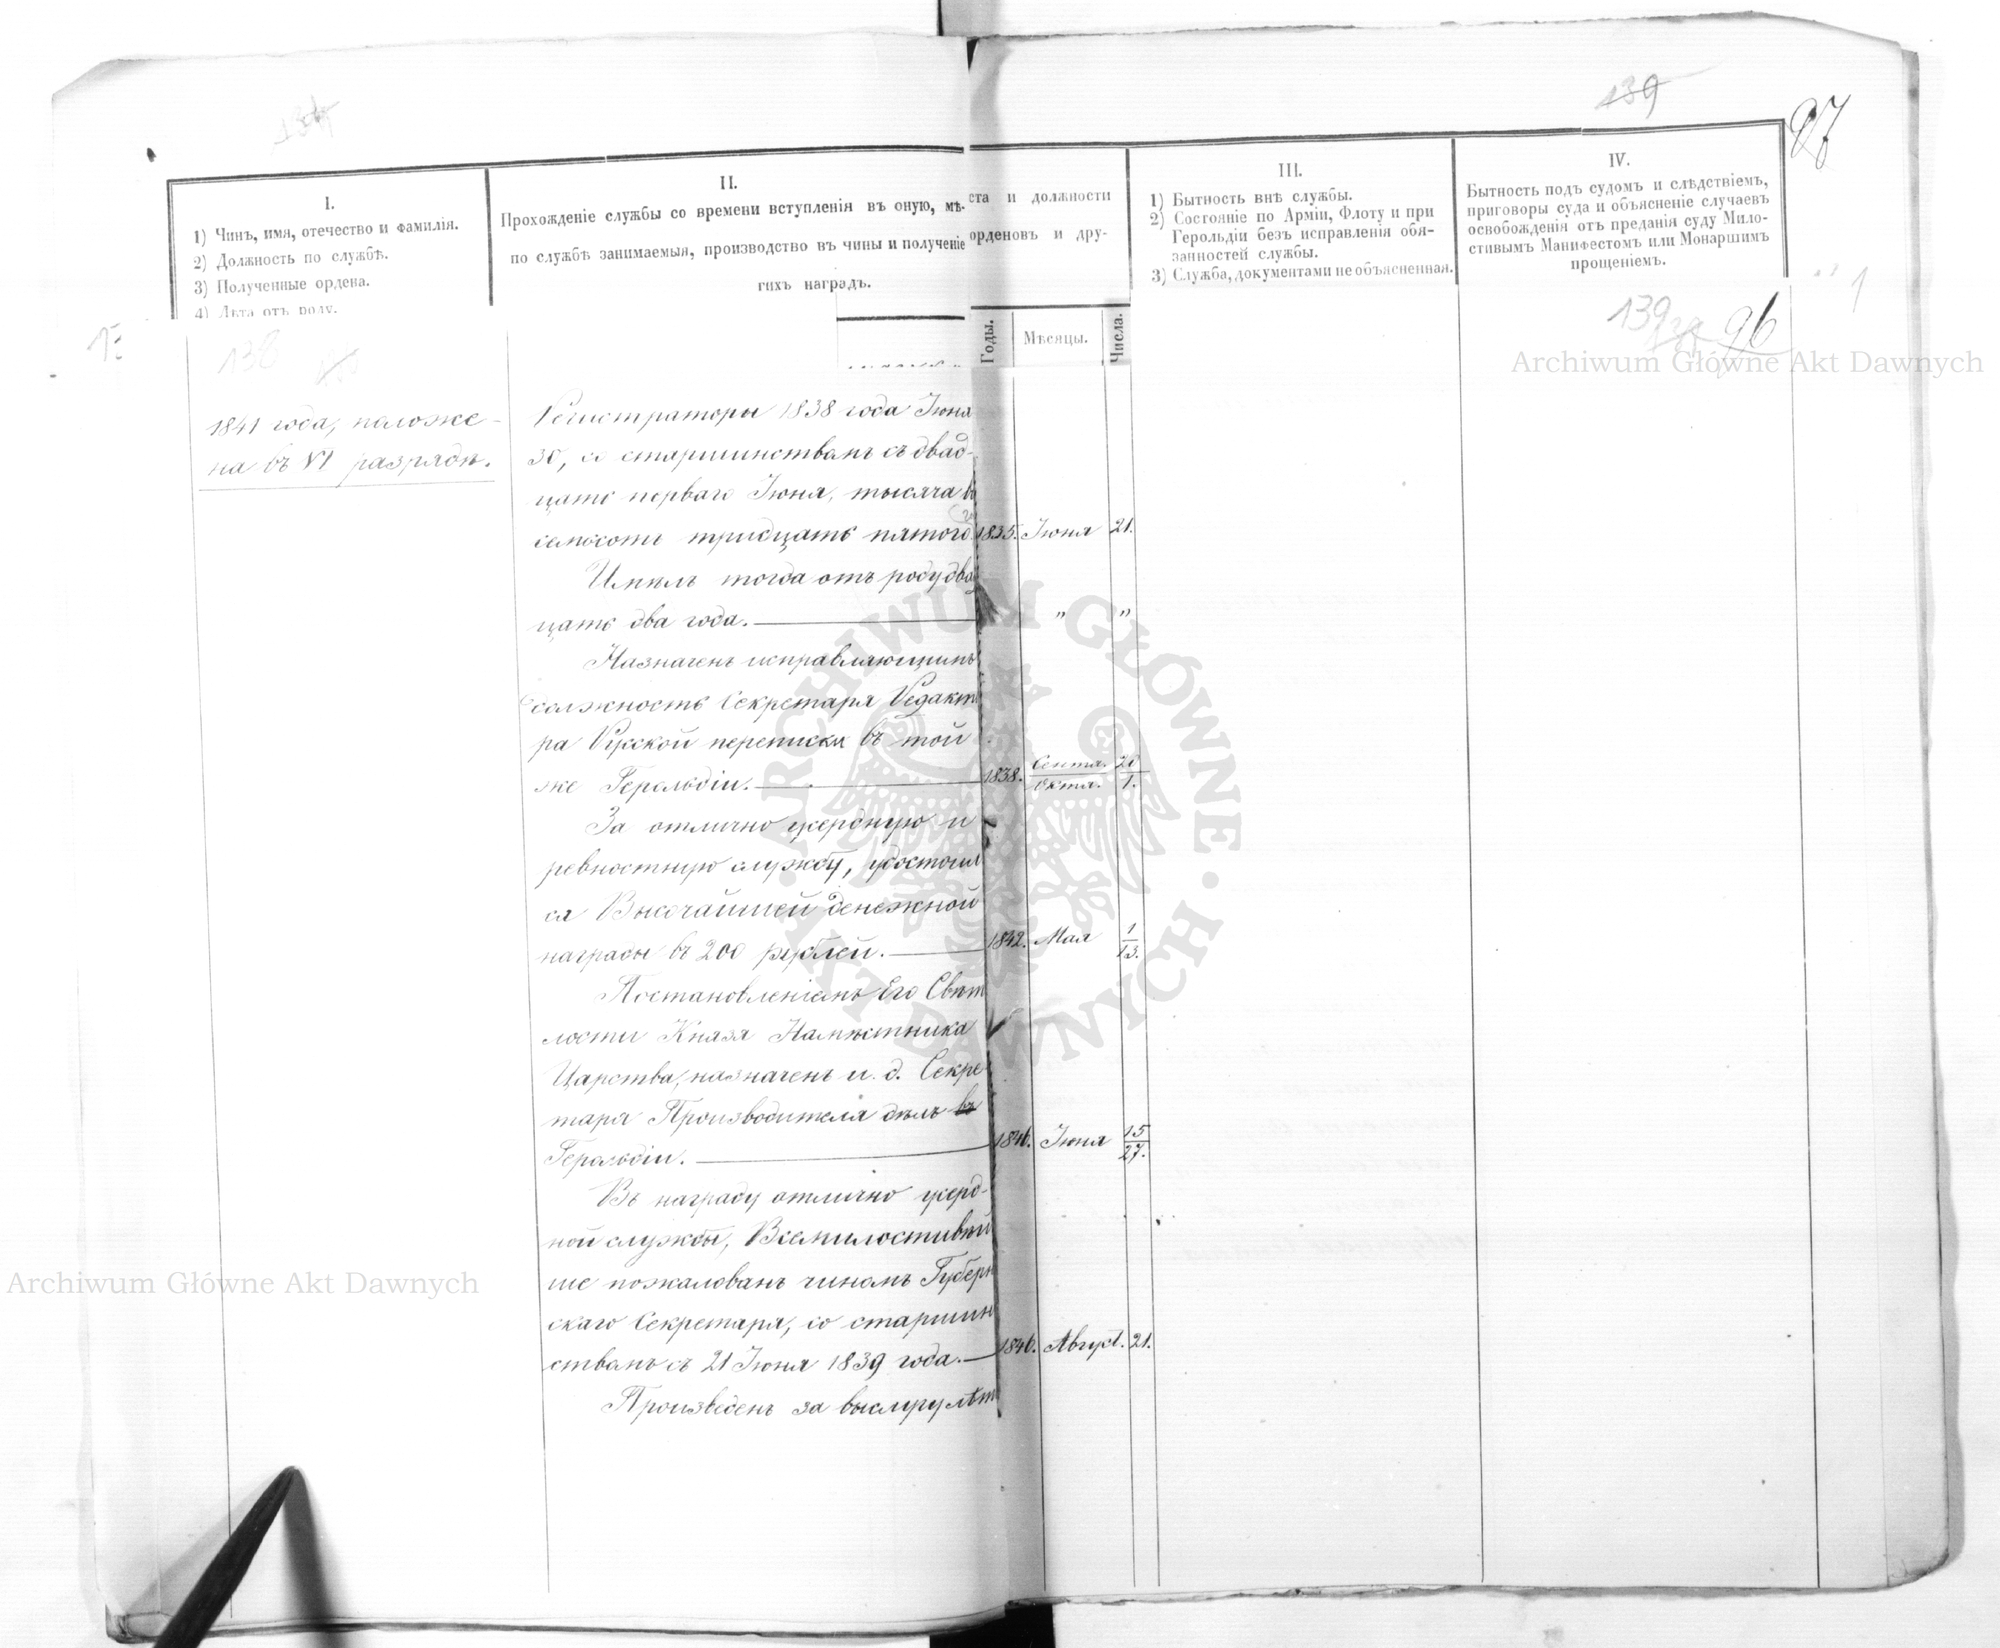 139
97
I.
1) Чинъ, имя, отечество и фамилія.
2) Должность по службѣ.
3) Полученные ордена.
4) Лѣта отъ роду.
II.
Прохожденіе службы со времени вступленія въ оную, мѣ-
ста и должности
по службѣ занимаемыя, производство въ чины и полученіе
орденовъ и дру-
гихъ наградъ.
Годы.
Мѣсяцы.
Числа.
III.
1) Бытность внѣ службы.
2) Состояніе по Арміи, Флоту и при
Герольдіи безъ исправленія обя-
занностей службы.
3) Служба, документами не объясненная.
IV.
Бытность подъ судомъ и слѣдствіемъ,
приговоры суда и объясненіе случаевъ
освобожденія отъ преданія суду Мило-
стивымъ Манифестомъ или Монаршимъ
прощеніемъ.
138
139 96
Archiwum Główne Akt Dawnych
1841 года, положе-
на въ VI разрядѣ.
Регистраторы 1838 года Іюня
30, со старшинствомъ съ двад-
цать перваго Іюня, тысяча во
семьсотъ тридцать пятого 1835. Іюня 21.
Имѣлъ тогда отъ роду двад
цать два года. " "
Назначенъ исправляющимъ
должность Секретаря Редакто
ра Русской переписки въ той
же Герольдіи. 1838. Сентя. 20 Октя. 1.
За отлично усердную и
ревностную службу, удостоил
ся Высочайшей денежной
награды въ 200 рублей. 1842. Мая 1/13.
Постановленіемъ Его Свѣт
лости Князя Намѣстника
Царства, назначенъ и. д. Секре
таря Производителя дѣлъ въ
Герольдіи. 1846. Іюня 15/27.
Въ награду отлично усерд-
ной службы, Всемилостивѣй
ше пожалованъ чиномъ Губерн
скаго Секретаря, со старшин
ствомъ съ 21 Іюня 1839 года. 1846. Август. 21.
Произведенъ за выслугу лѣт
ARCHIWUM GŁÓWNE AKT DAWNYCH
Archiwum Główne Akt Dawnych